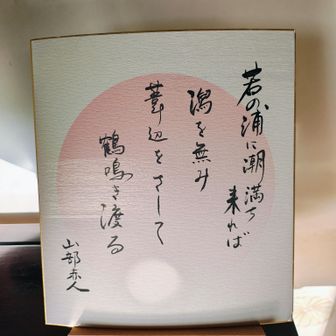 若の浦に潮満ち
来れば
潟を無み
葦辺をさして
鶴鳴き渡る
山部赤人